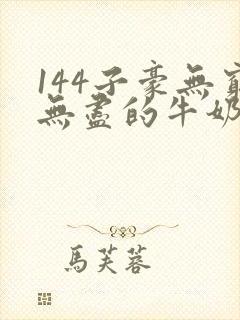 144子豪無窮
無盡的牛奶
馬芙蓉